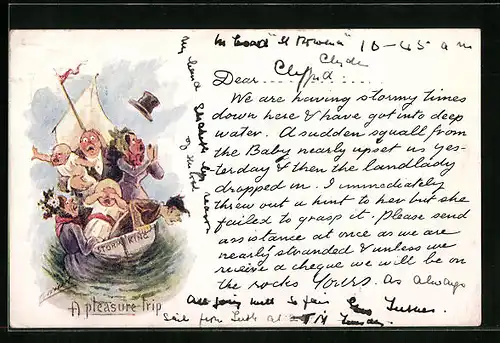 on board "St Rowena" 10-45 a m
Clyde
Dear Clifford
We are having stormy times
down here & have got into deep
water. A sudden squall from
the Baby nearly upset us yes-
terday & then the landlady
dropped in. I immediately
threw out a hint to her but she
failed to grasp it. Please send
assistance at once as we are
nearly stranded & unless we
receive a cheque we will be on
the rocks Yours. as always
All going well so far Turner
Sail from Leith at Tuesday
My hand shakes by reason
of the
STORM KING
A pleasure trip